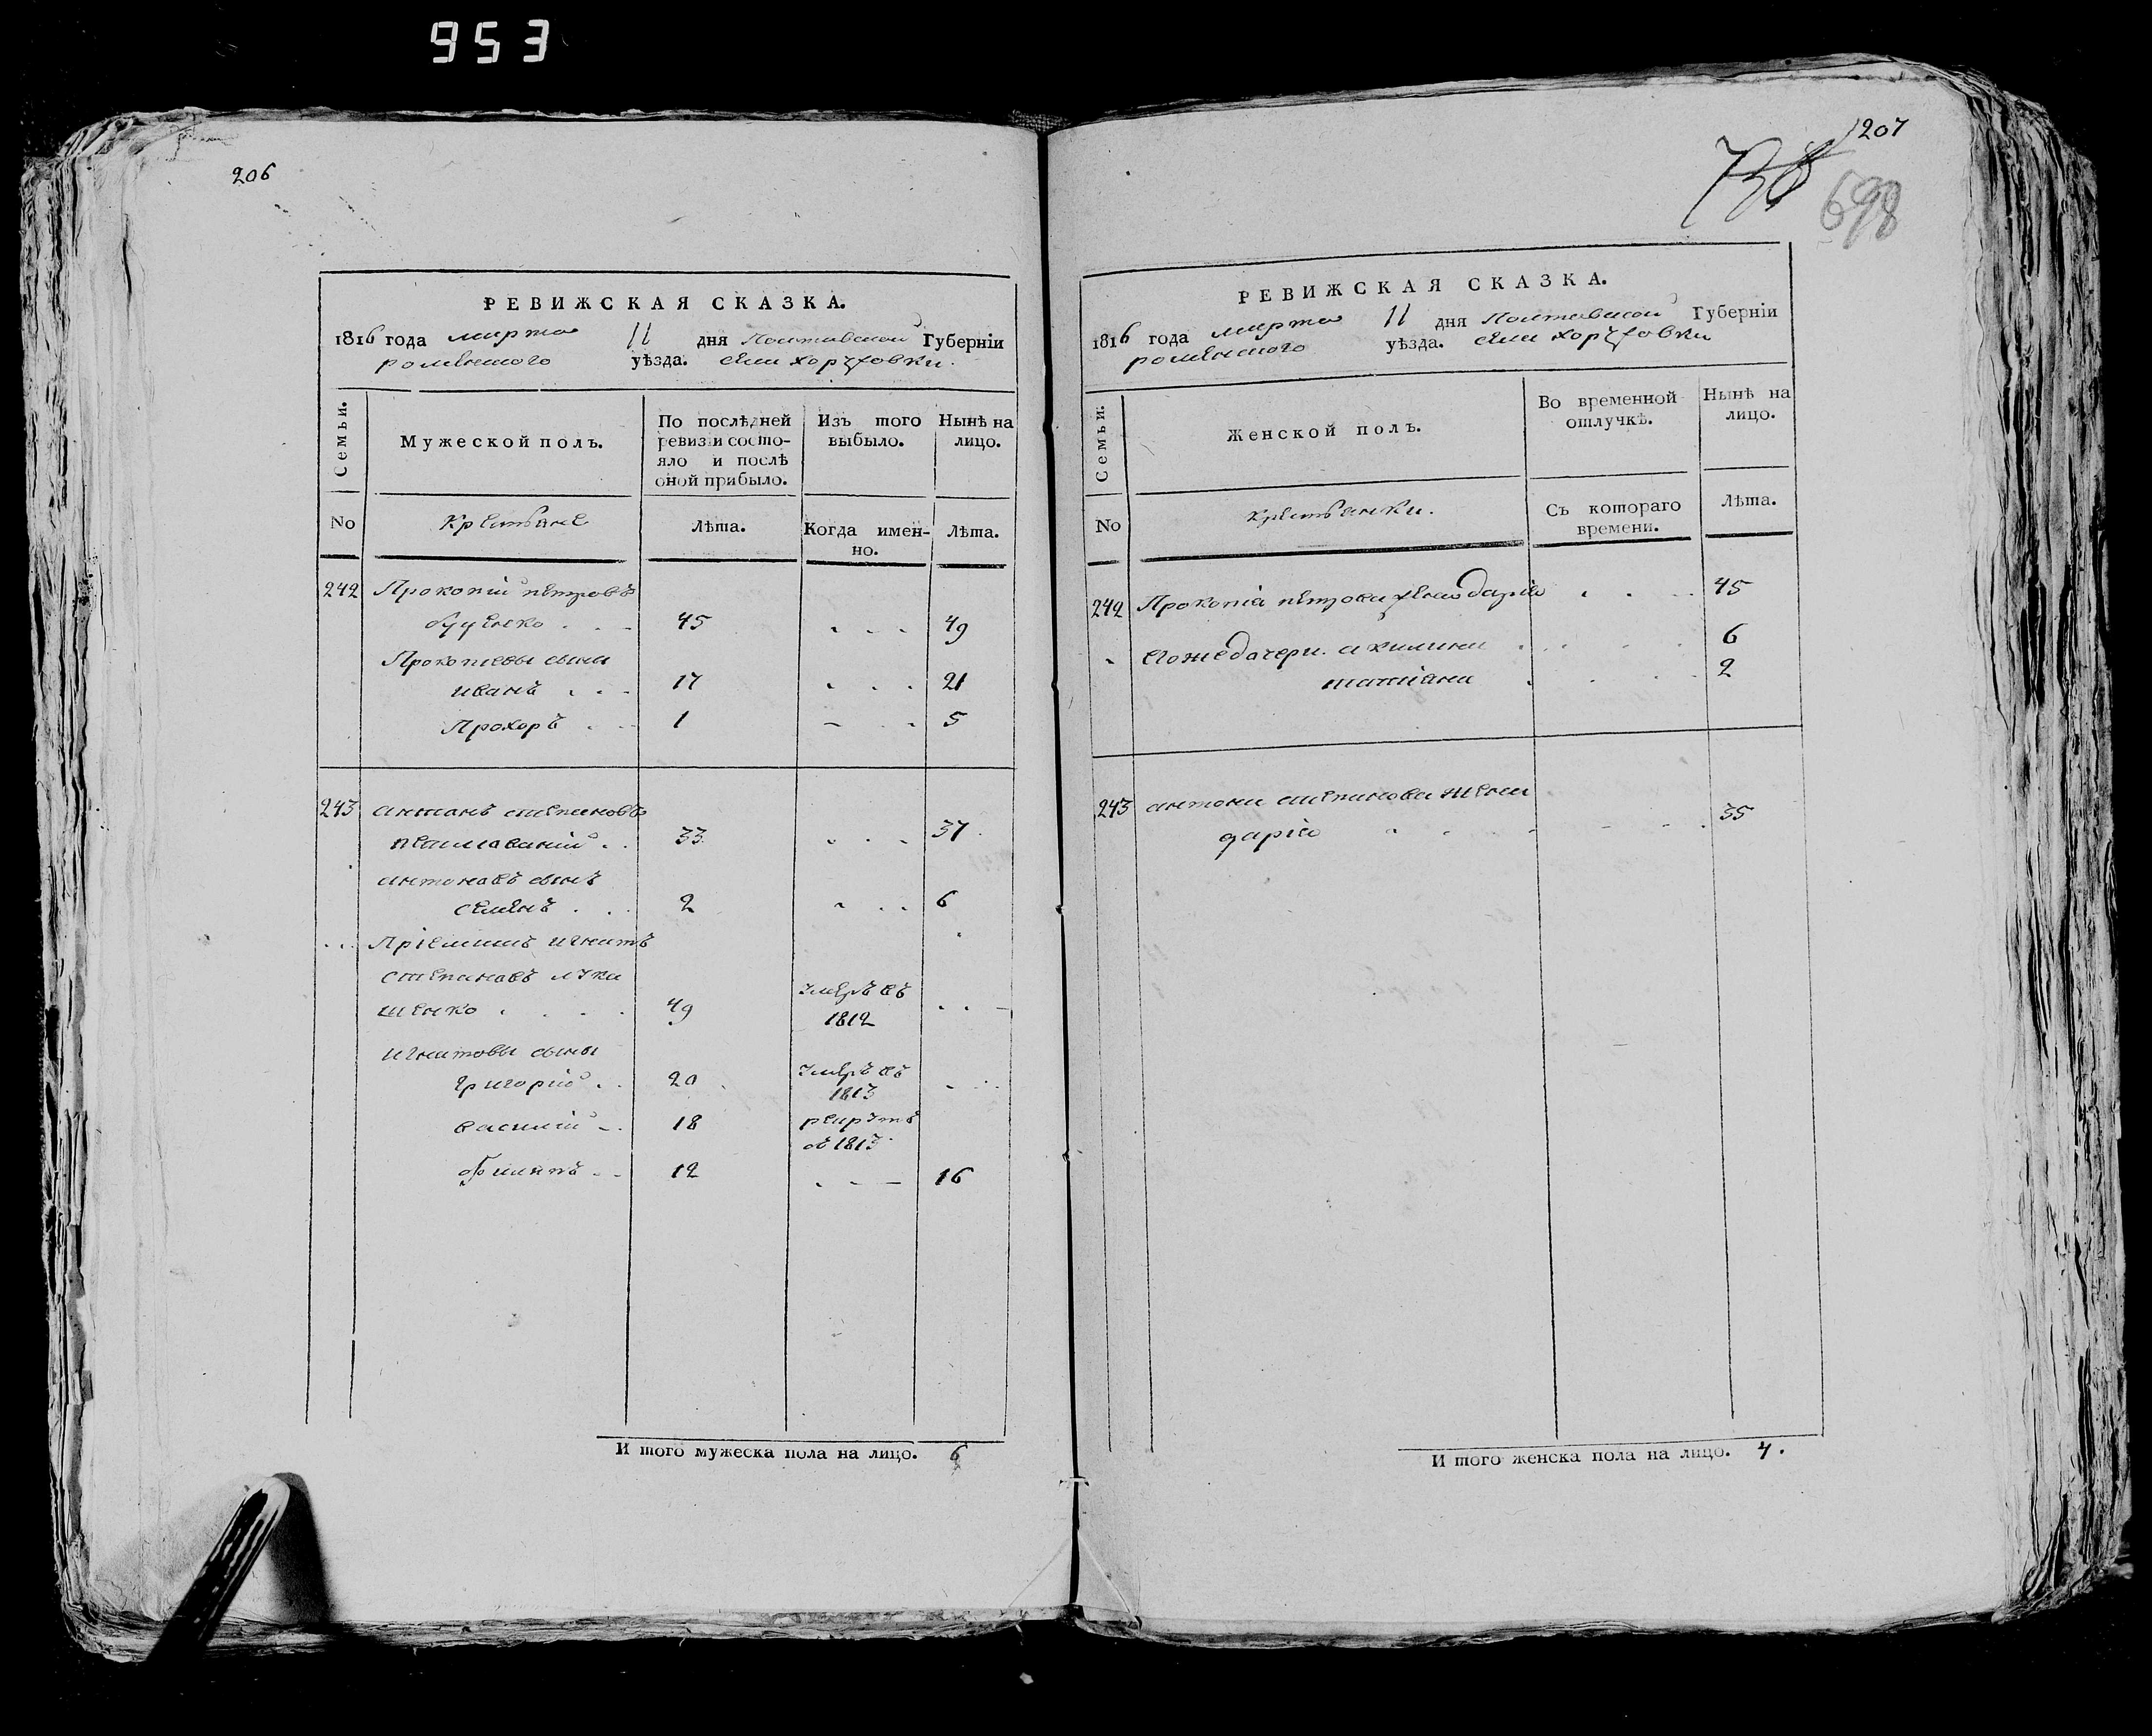 953
206
РЕВИЖСКАЯ СКАЗКА.
1816 года марта 11 дня Полтавской Губерніи
роменского уѣзда. села хоружовки.
Семьи.
Мужеской полъ.
По послѣдней ревизіи состо-
яло и послѣ
оной прибыло.
Изъ того
выбыло.
Нынѣ на
лицо.
No
Крестьяне
Лѣта.
Когда имен-
но.
Лѣта.
242 Прокопій петровъ
45 . . . 49
Прокопіевы сыны
иванъ . . . 17 . . . 21
Прохоръ . . 1 . . 5
243 антонъ степановъ
33 . . . 37
антоновъ сынъ
семенъ . . . 2 . . . 6
Пріемышъ игнатъ
степановъ лука
шенко . . . . 49 умеръ въ
1812
игнатовы сыны
григорій . . 20 умеръ въ
1813
василій . . 18 рекрутъ
въ 1813
филипъ . . 12 . . . 16
И того мужеска пола на лицо. 6
207
738
698
РЕВИЖСКАЯ СКАЗКА.
1816 года марта 11 дня Полтавской Губерніи
роменского уѣзда. села хоружовки
Семьи.
Женской полъ.
Во временной
отлучкѣ.
Нынѣ на
лицо.
No
крестьянки.
Съ котораго
времени.
Лѣта.
242 Прокопіа петрова жена дарія . . . 45
егоже дочери. акилина . . . 6
татіана . . . 2
243 антона степанова жена
дарія . . . . . 35
И того женска пола на лицо. 4.